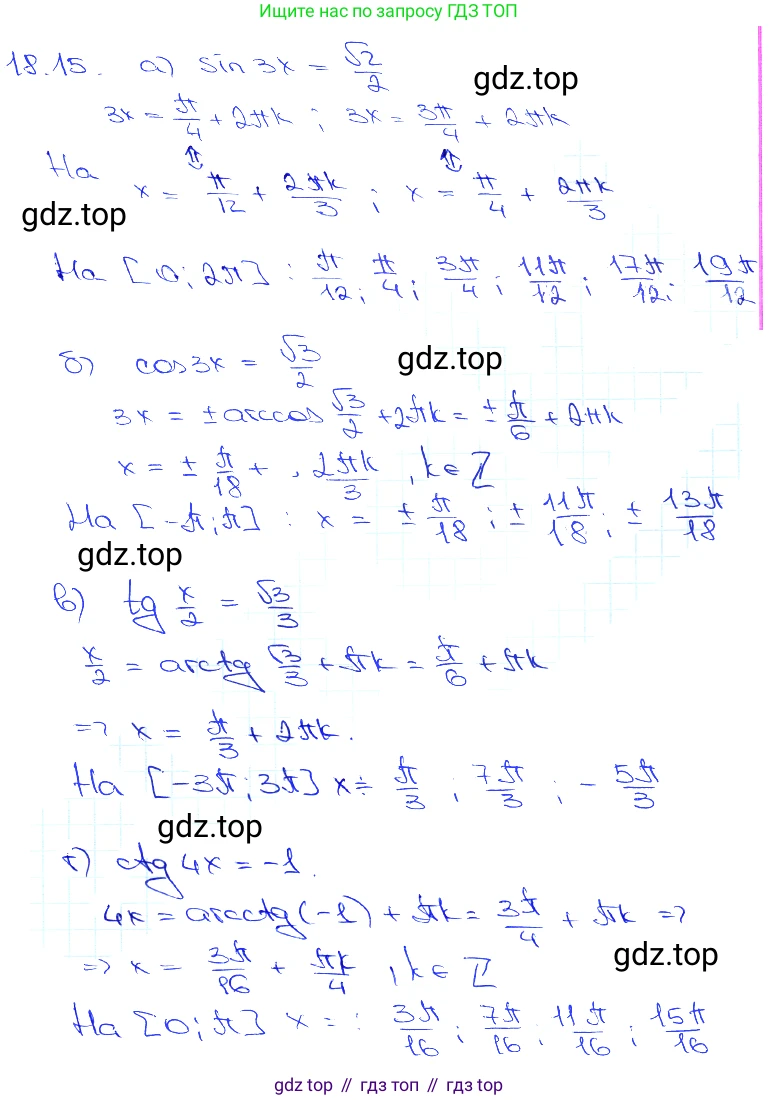 Ищите нас по запросу ГДЗ ТОП
18.15. а) sin 3x = √2/2
gdz.top
3x = π/4 + 2πk ; 3x = 3π/4 + 2πk
⇕ ⇕
На x = π/12 + 2πk/3 ; x = π/4 + 2πk/3
gdz.top
На [0; 2π] : π/12; π/4; 3π/4; 11π/12; 17π/12; 19π/12
б) cos 3x = √3/2
gdz.top
3x = ± arccos √3/2 + 2πk = ± π/6 + 2πk
x = ± π/18 + , 2πk/3 , k ∈ ℤ
На [-π; π] : x = ± π/18 ; ± 11π/18 ; ± 13π/18
gdz.top
в) tg x/2 = √3/3
x/2 = arctg √3/3 + πk = π/6 + πk
=> x = π/3 + 2πk.
На [-3π; 3π] x ÷ π/3 ; 7π/3 ; - 5π/3
gdz.top
г) ctg 4x = -1.
4x = arcctg(-1) + πk = 3π/4 + πk =>
=> x = 3π/16 + πk/4 , k ∈ ℤ
gdz.top
На [0; π] x = : 3π/16 ; 7π/16 ; 11π/16 ; 15π/16
gdz top // гдз топ // gdz top